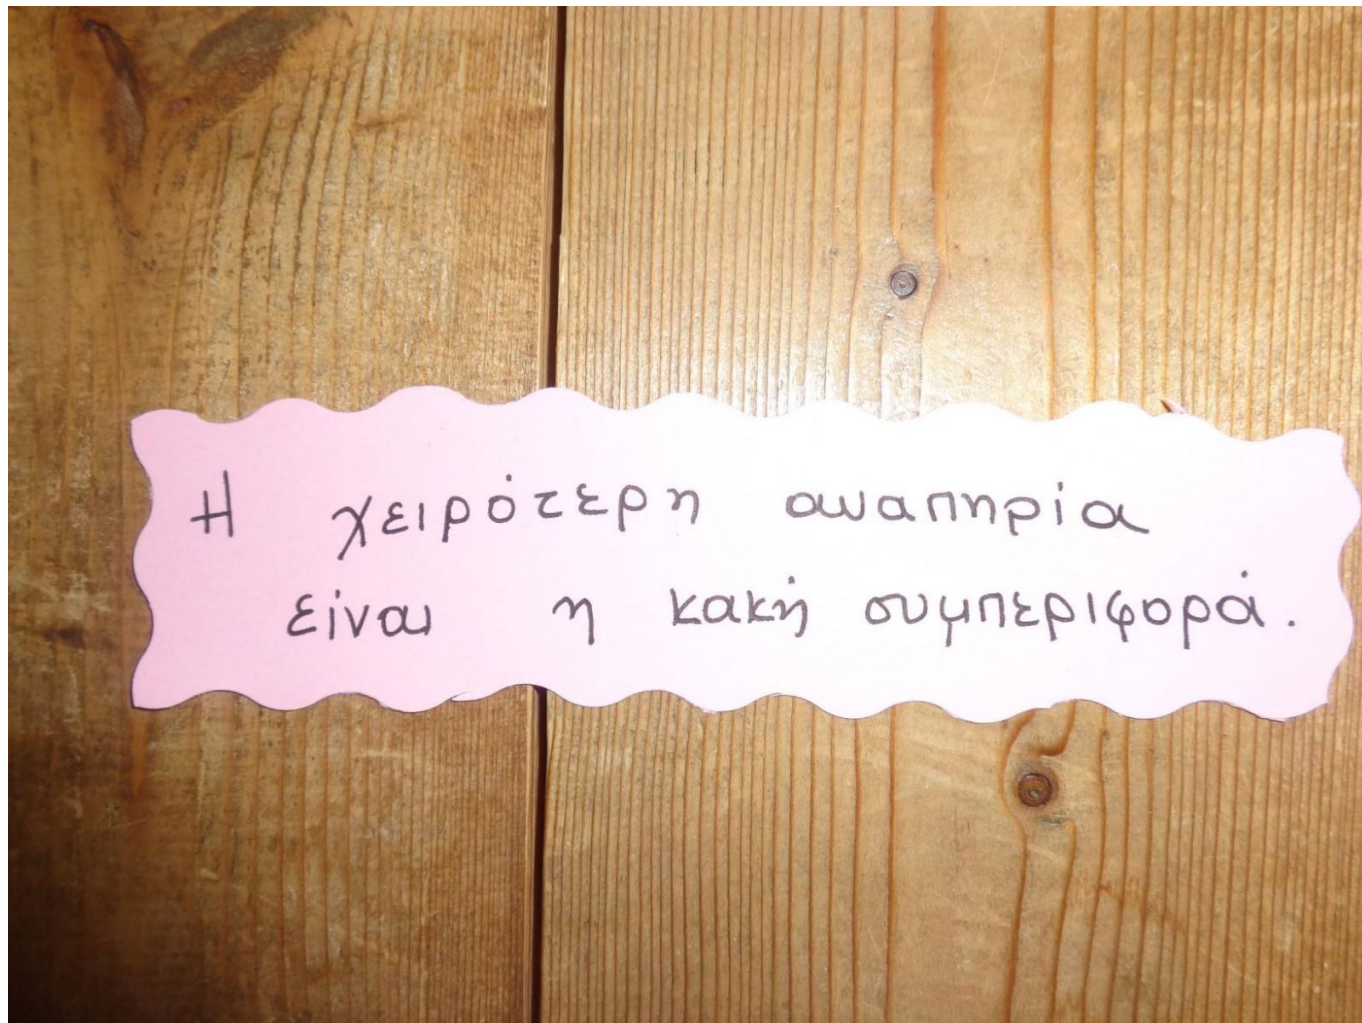 Η χειρότερη αναπηρία
είναι η κακή συμπεριφορά.